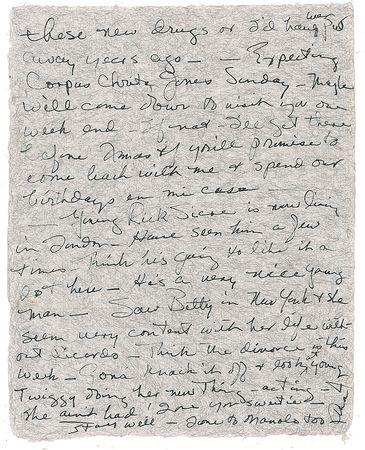 these new drugs or I'd have been
away years ago — — Expecting
Corpus Christi Jones Sunday — Maybe
will come down to visit you one
week end — If not — I'll get there
before Xmas & if you'll promise to
come back with me & spend our
birthdays en mi casa —
— Young Rick is now living
in London — Have seen him a few
times. Think his going to like it a
lot here — He's a very nice young
man — Saw Betty in New York & she
seem very content with her life with-
out Ricardo — Think the divorce is this
week — Gona knock it off & look at young
Twiggy doing her new Thing — acting —
she aint bad, Love you sweetie
stay well — Love to Manolo too